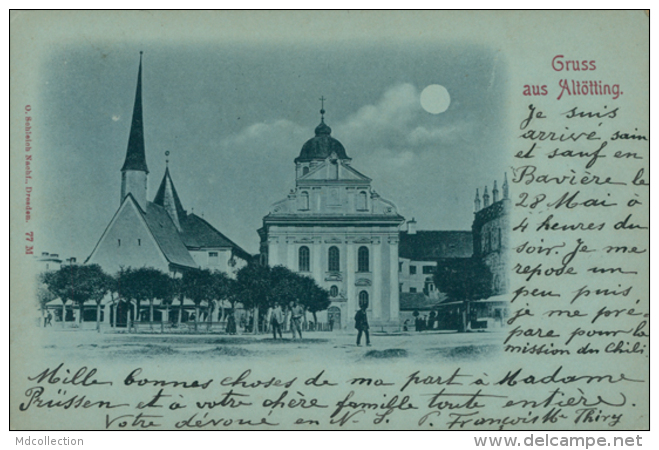 Gruss
aus Altötting.
O. Schleich Nachf., Dresden. 77 M
Je suis
arrivé sain
et sauf en
Bavière le
28 Mai à
4 heures du
soir. Je me
repose un
peu puis
je me pré-
pare pour la
mission du Chili.
Mille bonnes choses de ma part à Madame
Prüssen et à votre chère famille toute entière.
Votre dévoué en N. S. P. François M. Thiry
Mdcollection
www.delcampe.net